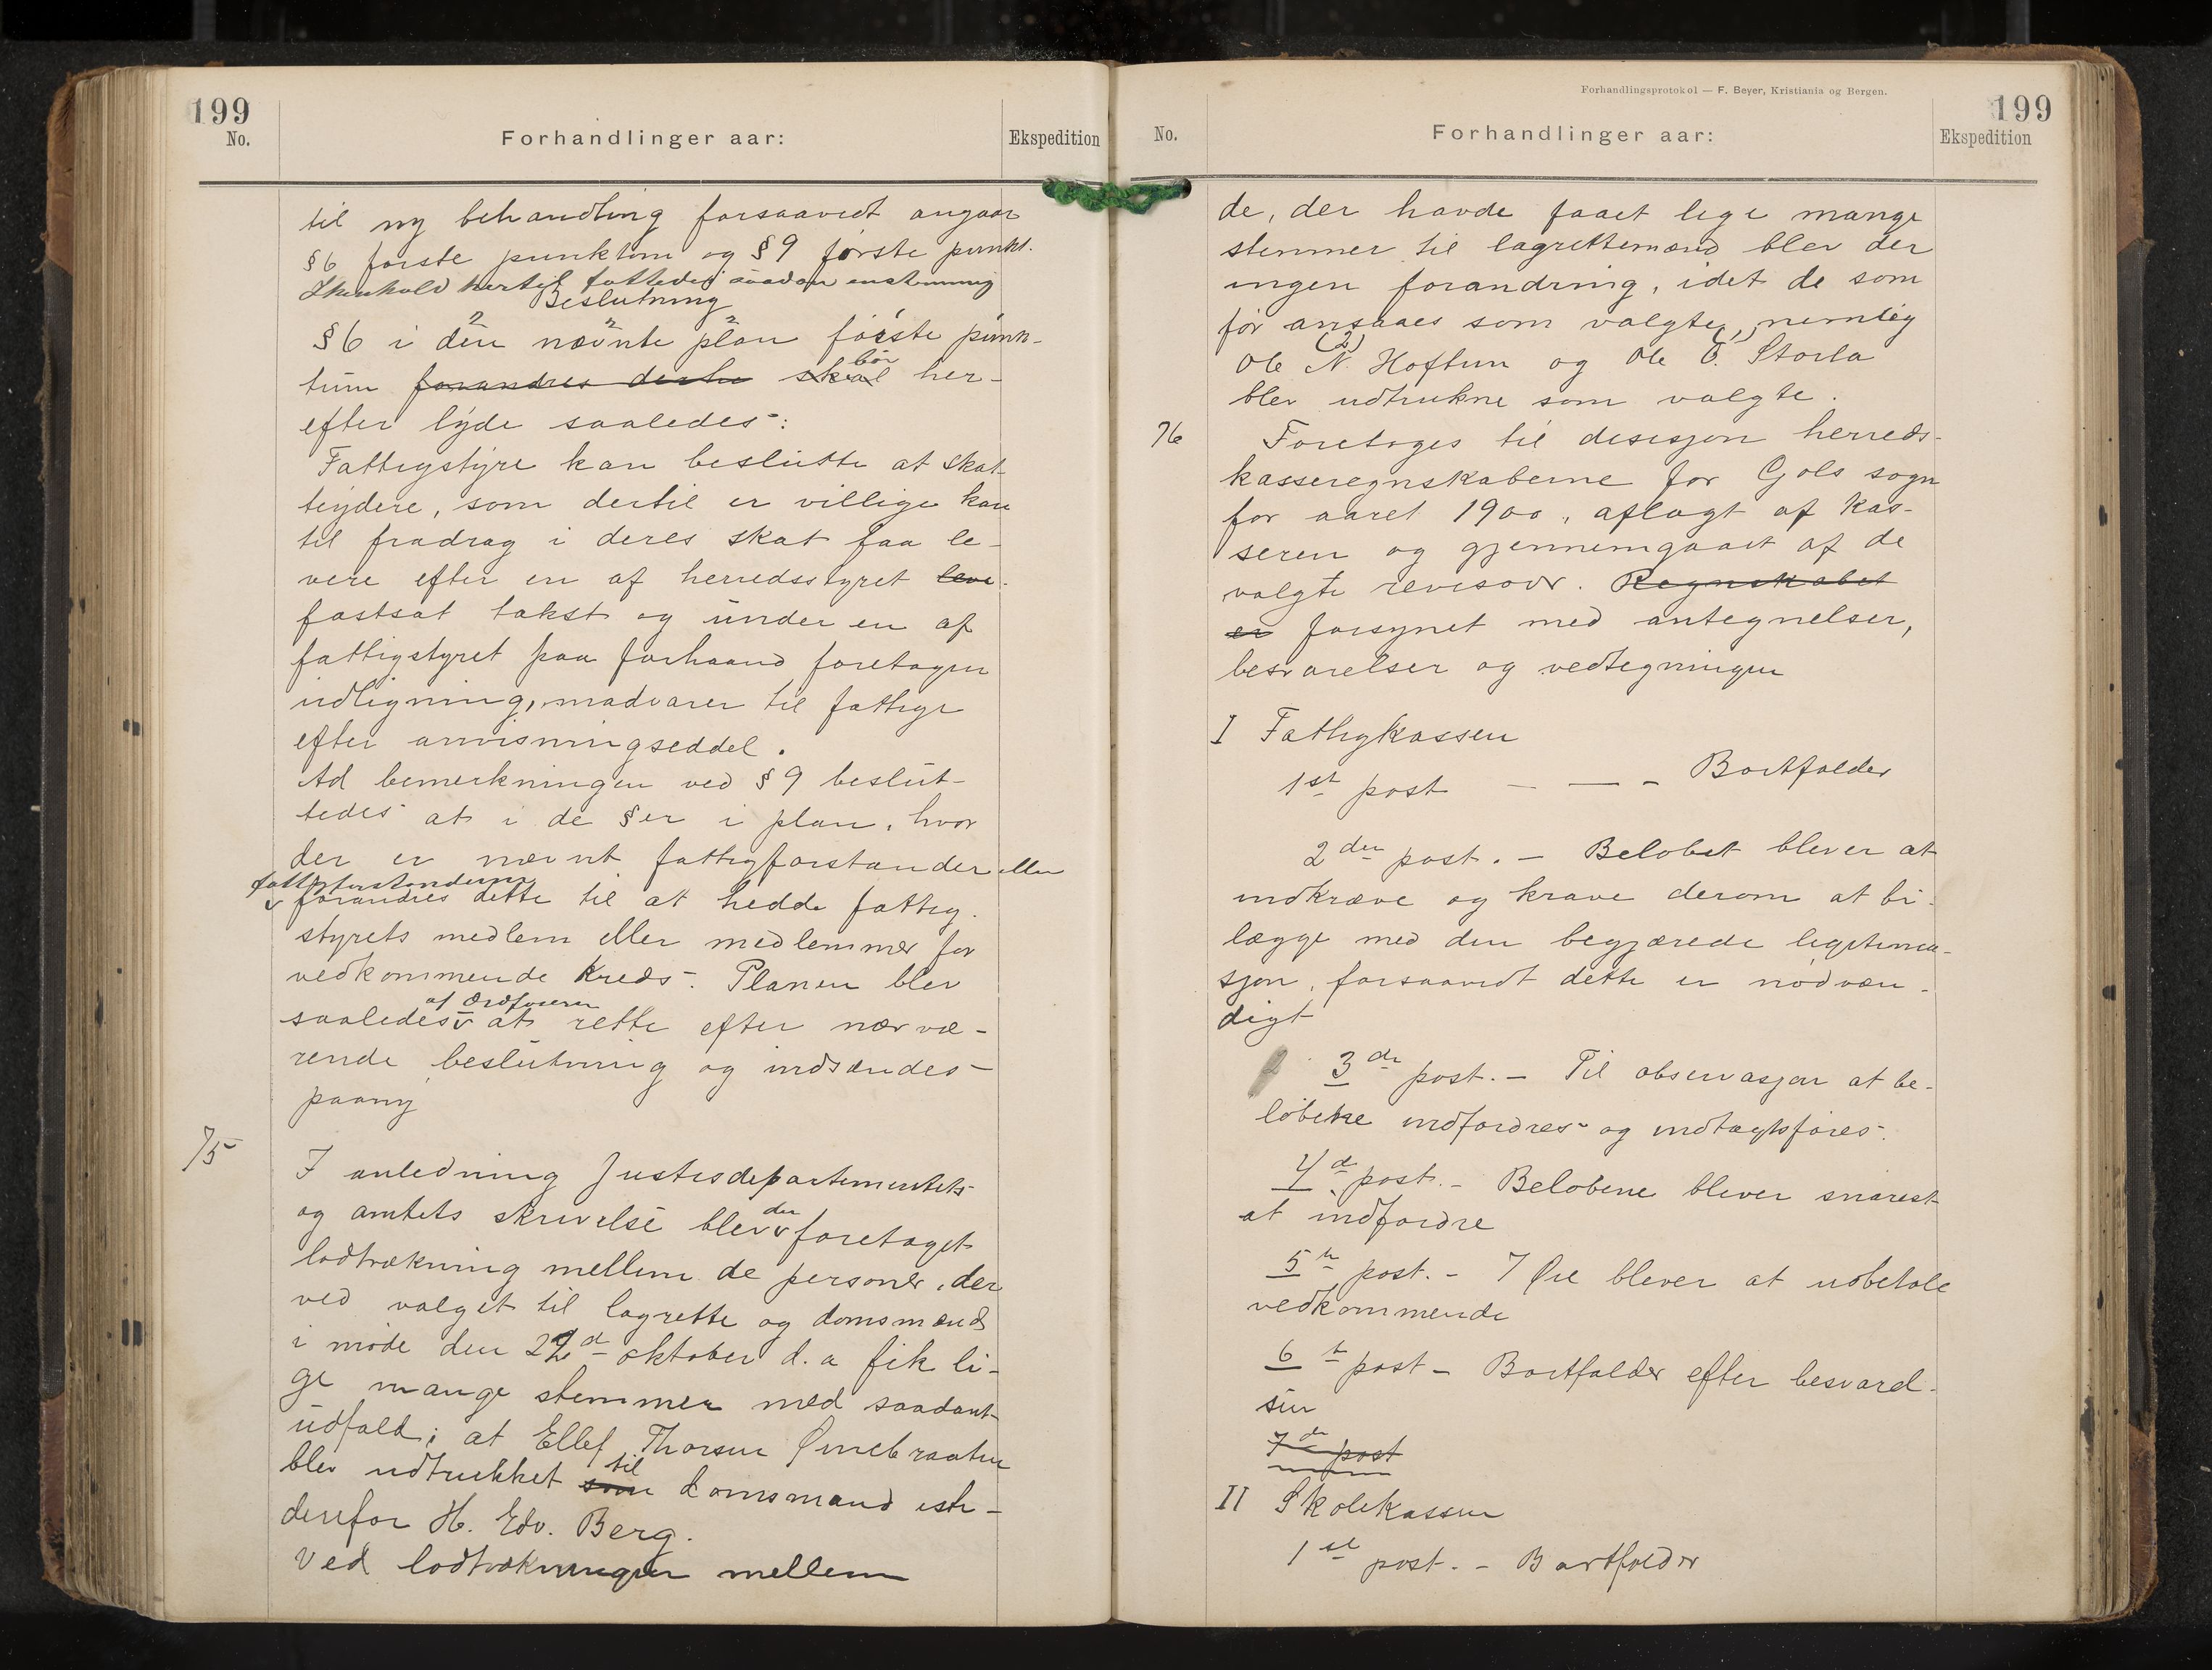 199
No.
Forhandlinger aar:
Ekspedition
til ny behandling forsaavidt angaar
§6 første punktum og §9 første punkt.
I henhold hertil fattedes saadan enstemmig
Beslutning
§6 i den nævnte plan første punk-
tum forandres derhe skal bør her-
efter lyde saaledes:
Fattigstyre kan beslutte at skat-
teydere, som dertil er villige kan
til fradrag i deres skat faa le-
vere efter en af herredsstyret leve-
fastsat takst og under en af
fattigstyret paa forhaand foretagen
udligning, madvarer til fattige
efter anvisningseddel.
Ad bemerkningen ved §9 beslut-
tedes at i de §er i plan, hvor
der er nævnt fattigforstander eller
fattigforstanderne
forandres dette til at hedde fattig-
styrets medlem eller medlemmer for
vedkommende Kreds. Planen blev
af ordføreren
saaledes at rette efter nærvæ-
rende beslutning og indsændes
paany
75
I anledning Justisdepartementets
og amtets skrivelse blev der foretaget
lodtrækning mellem de personer, der
ved valget til lagrette og domsmænd
i møde den 22d oktober d. a fik li-
ge mange stemmer med saadant
udfald; at Ellef Thorsen Ørnebraaten
blev udtrukket som til domsmand iste-
denfor H. Edv. Berg.
Ved lodtrækningen mellem
Forhandlingsprotokol — F. Beyer, Kristiania og Bergen.
199
No.
Forhandlinger aar:
Ekspedition
de, der havde faaet lige mange
stemmer til lagrettemænd blev der
ingen forandring, idet de som
før ansaaes som valgte, nemlig
(2) (1)
Ole N. Hoftun og Ole O. Storla
blev udtrukne som valgte.
76
Foretoges til desisjon herreds-
kasseregnskaberne for Gols sogn
for aaret 1900, aflagt af kas-
seren og gjennemgaaet af de
valgte revisorer. Regnskabet
er forsynet med antegnelser,
besvarelser og vedtegninger
I Fattigkassen
1st post — — - Bortfalder
2den post. — Beløbet bliver at
indkræve og krave derom at bi-
lægge med den begjærede legitima-
sjon, forsaavidt dette er nødven-
digt
3de post. — Til observasjon at be-
løbene indfordres og indtægtsføres.
4de post. - Beløbene bliver snarest
at indfordre
5te post. - 7 Øre bliver at udbetale
vedkommende
6te post - Bortfalder efter besvarel-
sen
7de post
II Skolekassen
1ste post. - Bortfalder